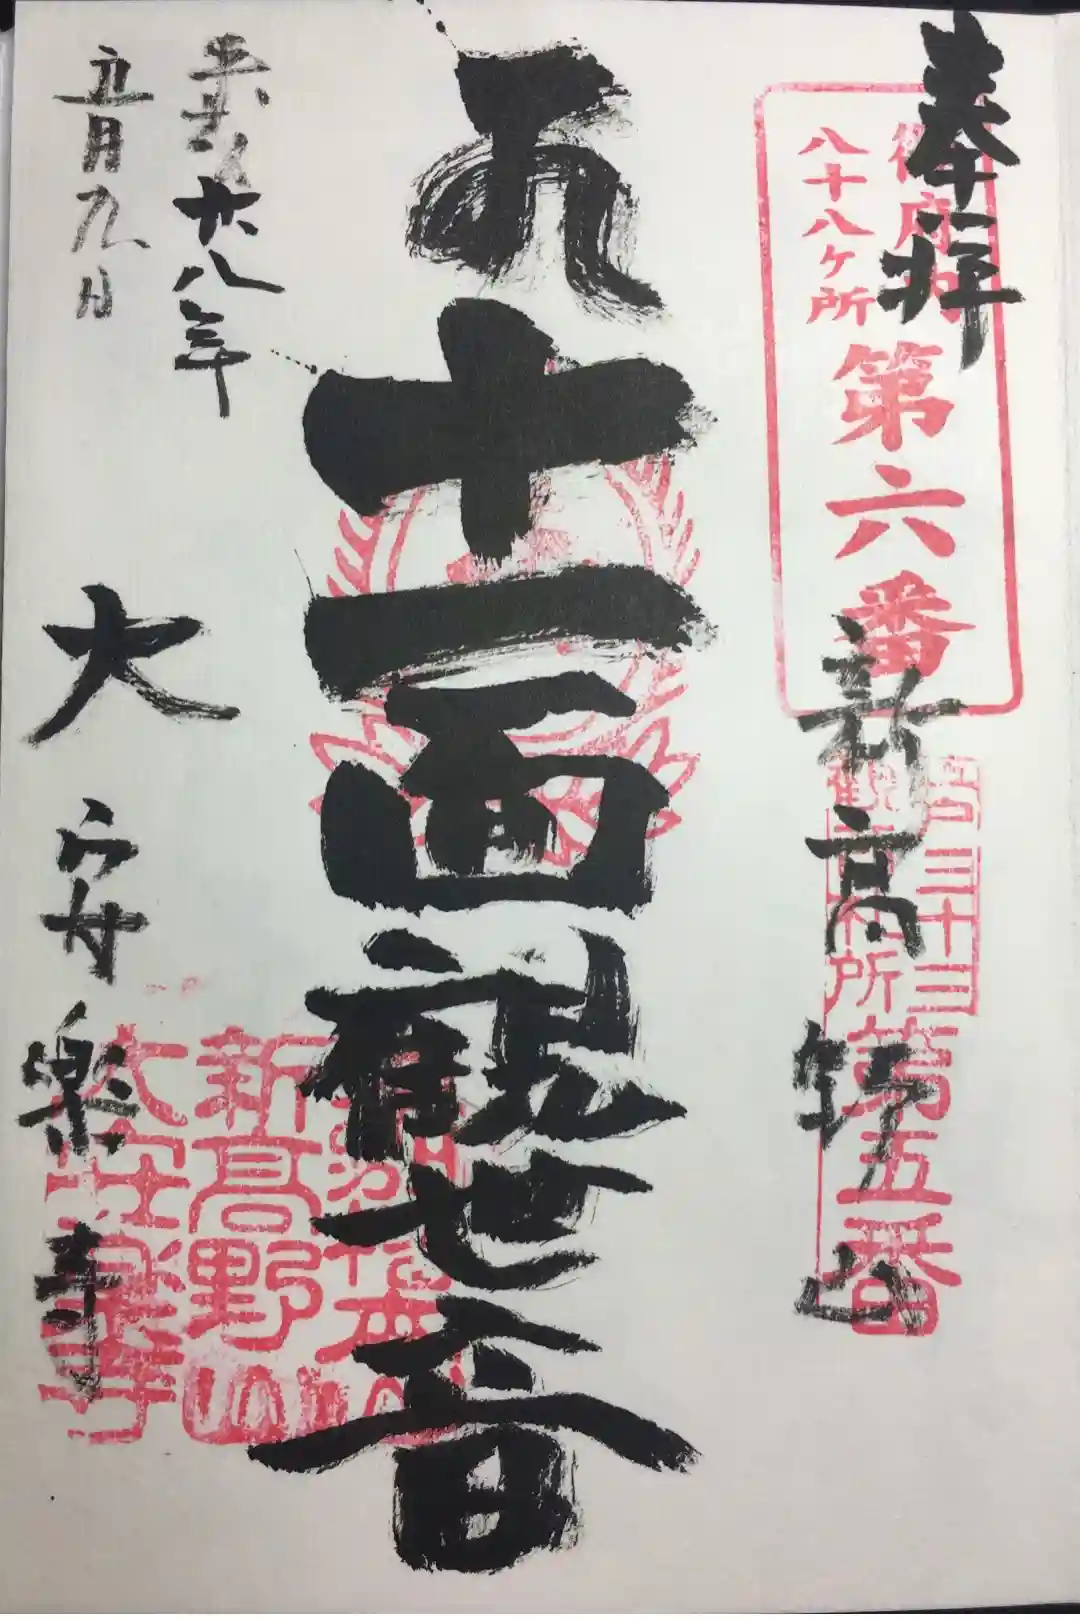 奉拝
御府内
八十八ケ所
第六番
新高野山
三十三
観音札所
第五番
十一面観世音
平成廿八年
五月九日
大安楽寺
新高野山
大安楽寺